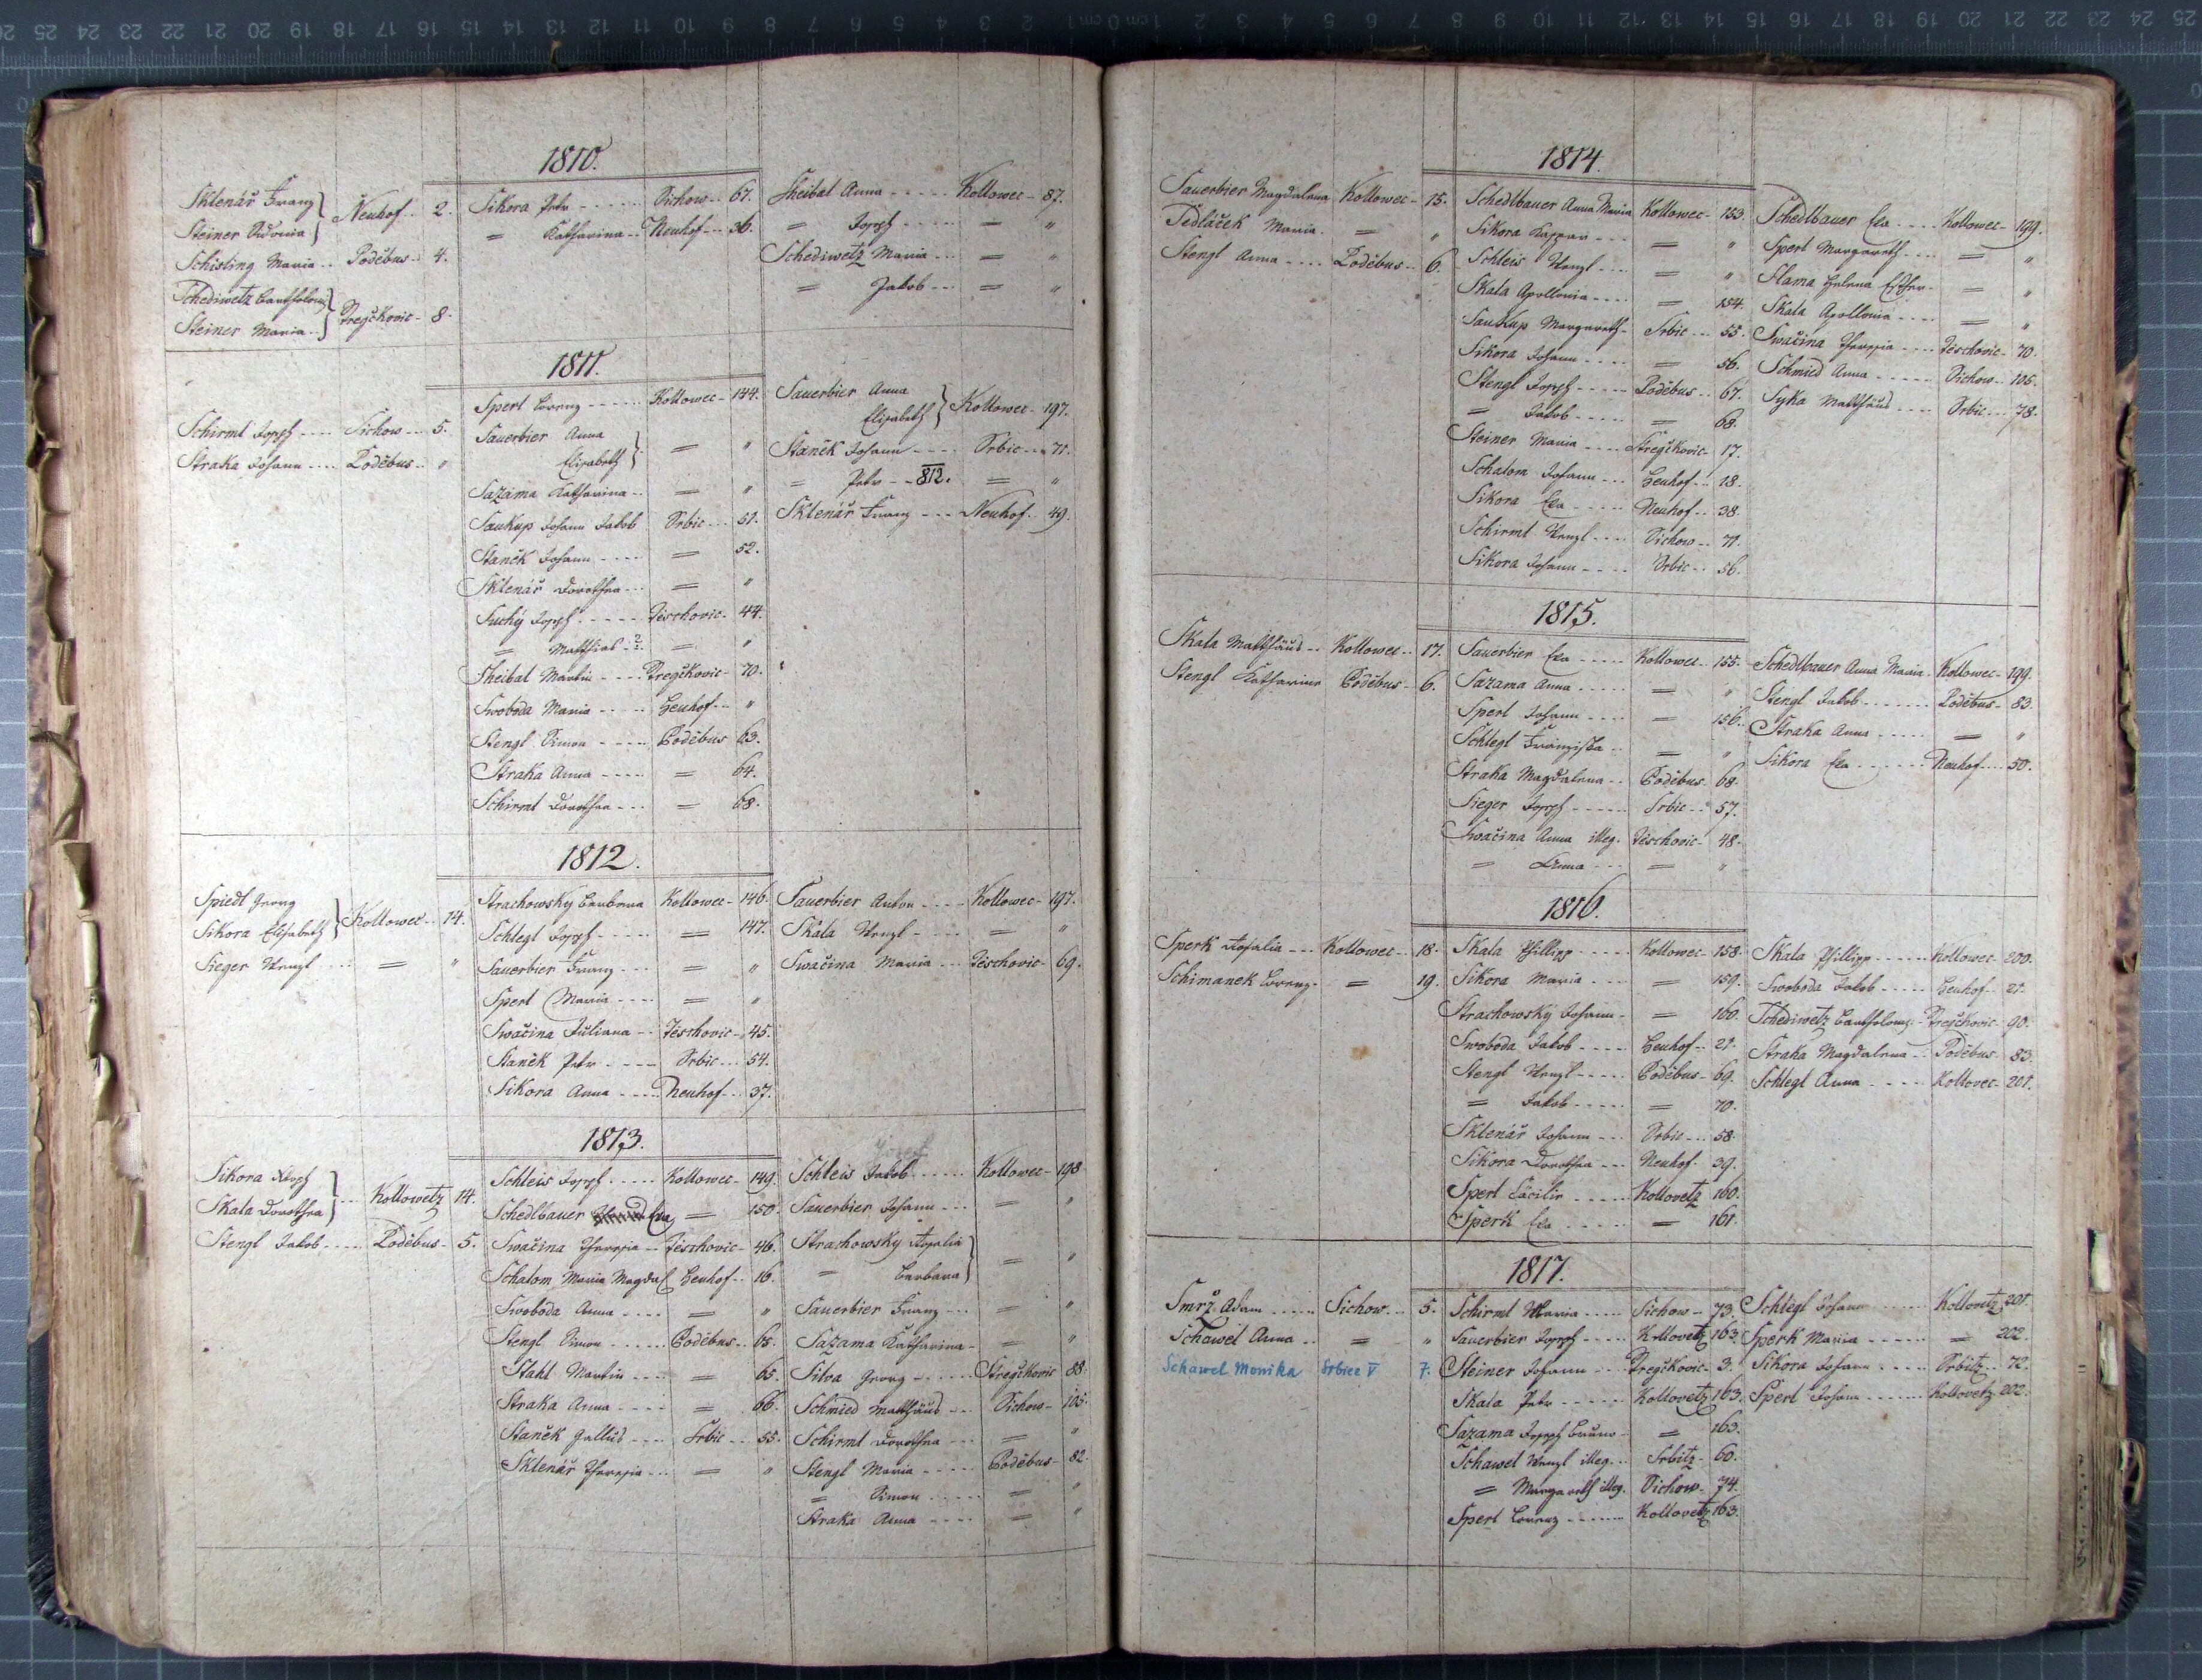 1810.
Sklenář Franz
Steiner Sidonia } Neuhof 2.
Schisling Maria Poděbus 4.
Schediwetz Bartholom
Steiner Maria } Stregčkovic 8.
Sikora Petr Sichow 67.
= Katharina Neuhof 36.
Sheibal Anna Kollowec 87.
= Joseph = "
Schediwetz Maria = "
= Jakob = "
1811.
Schirmt Joseph Sichow 5.
Straka Johann Poděbus "
Sperl Lorenz Kollowec 144.
Sauerbier Anna
Elisabeth } = "
Sazama Katharina = "
Saukup Johann Jakob Srbic 51.
Staněk Johann = 52.
Sklenář Dorothea = "
Suchý Joseph Těschovic 44.
= Matthias ? = "
Sheibal Martin Stregčkovic 70.
Swoboda Maria Heuhof "
Stengl Simon Poděbus 63.
Straka Anna = 64.
Schirmt Dorothea = 68.
Sauerbier Anna
Elisabeth } Kollowec 197.
Staněk Johann Srbic 71.
= Petr 812. = "
Sklenář Franz Neuhof 49.
1812.
Spiedl Georg
Sikora Elisabeth } Kollowec 14.
Sieger Wenzl = "
Strachowsky Barbara Kollowec 146.
Schlegl Joseph = 147.
Sauerbier Franz = "
Sperl Maria = "
Swačina Juliana Těschovic 45.
Staněk Petr Srbic 54.
Sikora Anna Neuhof 37.
Sauerbier Anton Kollowec 197.
Skala Wenzl = "
Swačina Maria Těschovic 69.
1813.
Sikora Joseph
Skala Dorothea } Kollowetz 14.
Stengl Jakob Poděbus 5.
Schleis Joseph Kollowec 149.
Schedlbauer Eva = 150.
Swačina Theresia Těschovic 46.
Schalom Maria Magdal Heuhof 16.
Swoboda Anna = "
Stengl Simon Poděbus 65.
Stahl Martin = 65.
Straka Anna = 66.
Staněk Gallus Srbic 55.
Sklenář Theresia = "
Josef
Schleis Jakob Kollowec 198
Sauerbier Johann = "
Strachowsky Rosalia
= Barbara } = "
Sauerbier Franz = "
Sazama Katharina = "
Silva Georg Stregčkovic 88.
Schmied Matthäus Sichow 105.
Schirmt Dorothea = "
Stengl Maria Poděbus 82.
= Simon = "
Straka Anna = "
1814.
Sauerbier Magdalena Kollowec 15.
Sedláček Maria = "
Stengl Anna Poděbus 6.
Schedlbauer Anna Maria Kollowec 153.
Sikora Kaspar = "
Schleis Wenzl = "
Skala Apollonia = 154.
Saukup Margareth Srbic 55.
Sikora Johann = 56.
Stengl Joseph Poděbus 67.
= Jakob = 68.
Steiner Maria Stregčkovic 17.
Schalom Johann Heuhof 18.
Sikora Eva Neuhof 38.
Schirmt Wenzl Sichow 71.
Sikora Johann Srbic 56.
Schedlbauer Eva Kollowec 199.
Sperl Margareth = "
Slama Helena Esther = "
Skala Apollonia = "
Swačina Theresia Těschovic 70.
Schmied Anna Sichow 105.
Syka Matthäus Srbic 78.
1815.
Skala Matthäus Kollowec 17.
Stengl Katharina Poděbus 6.
Sauerbier Eva Kollowec 155.
Sazama Anna = "
Sperl Johann = 156.
Schlegl Franziska = "
Straka Magdalena Poděbus 68.
Sieger Joseph Srbic 57.
Swačina Anna illeg. Těschovic 48.
= Anna = "
Schedlbauer Anna Maria Kollowec 199.
Stengl Jakob Poděbus 83.
Straka Anna = "
Sikora Eva Neuhof 50.
1816.
Sperk Rosalia Kollowec 18.
Schimanek Lorenz = 19.
Skala Phillipp Kollowec 158.
Sikora Maria = 159.
Strachowsky Johann = 160.
Swoboda Jakob Heuhof 21.
Stengl Wenzl Poděbus 69.
= Jakob = 70.
Sklenář Johann Srbic 58.
Sikora Dorothea Neuhof 39.
Sperl Cäcilie Kollovetz 160.
Sperk Eva = 161.
Skala Phillipp Kollowec 200.
Swoboda Jakob Heuhof 21.
Schediwetz Bartholom Stregčkovic 90.
Straka Magdalena Poděbus 83.
Schlegl Anna Kollovec 201.
1817.
Smrž Adam Sichow 5.
Schawel Anna = "
Schawel Monika Srbice V 7.
Schirmt Maria Sichow 73.
Sauerbier Joseph Kollovetz 163.
Steiner Johann Stregčkovic 3.
Skala Petr Kollovetz 163.
Sazama Joseph Bruno = 163.
Schawel Wenzl illeg. Srbitz 60.
= Margareth illeg. Sichow 74.
Sperl Lorenz Kollovetz 163.
Schlegl Johann Kollovetz 201.
Sperk Maria = 202.
Sikora Johann Srbitz 72.
Sperl Johann Kollovetz 202.